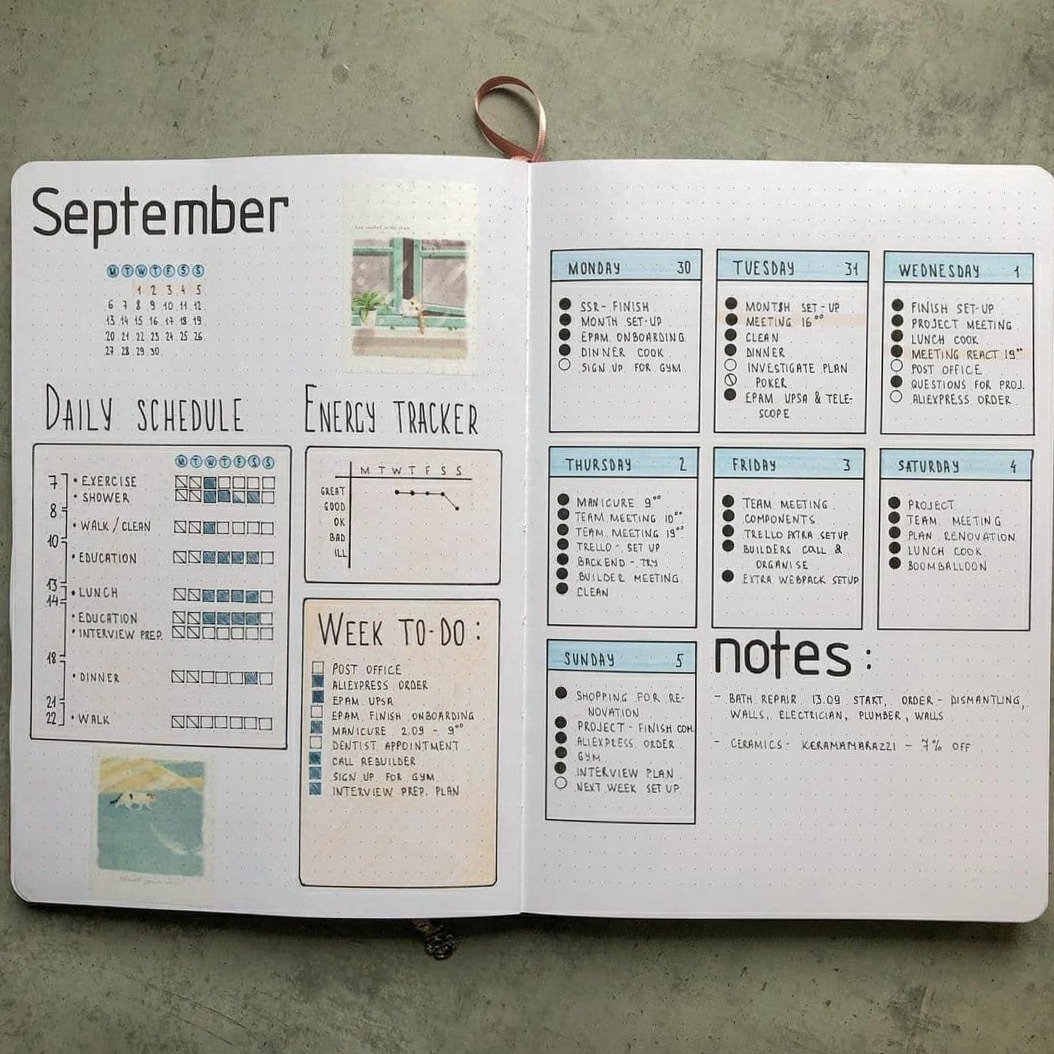 September
M T W T F S S
1 2 3 4 5
6 7 8 9 10 11 12
13 14 15 16 17 18 19
20 21 22 23 24 25 26
27 28 29 30
DAILY SCHEDULE
M T W T F S S
7
• EXERCISE
• SHOWER
8
• WALK / CLEAN
10
• EDUCATION
13
• LUNCH
14
• EDUCATION
• INTERVIEW PREP.
18
• DINNER
21
22
• WALK
ENERGY TRACKER
M T W T F S S
GREAT
GOOD
OK
BAD
ILL
WEEK TO-DO:
POST OFFICE
ALIEXPRESS ORDER
EPAM UPSA
EPAM FINISH ONBOARDING
MANICURE 2.09 - 9⁰⁰
DENTIST APPOINTMENT
CALL REBUILDER
SIGN UP FOR GYM
INTERVIEW PREP. PLAN
MONDAY 30
SSR- FINISH
MONTH SET-UP
EPAM ONBOARDING
DINNER COOK
SIGN UP FOR GYM
TUESDAY 31
MONTSH SET-UP
MEETING 16⁰⁰
CLEAN
DINNER
INVESTIGATE PLAN
POKER
EPAM UPSA & TELE-
SCOPE
WEDNESDAY 1
FINISH SET-UP
PROJECT MEETING
LUNCH COOK
MEETING REACT 19⁰⁰
POST OFFICE
QUESTIONS FOR PROJ.
ALIEXPRESS ORDER
THURSDAY 2
MANICURE 9⁰⁰
TEAM MEETING 10⁰⁰
TEAM MEETING 19⁰⁰
TRELLO - SET UP
BACKEND - TRY
BUILDER MEETING
CLEAN
FRIDAY 3
TEAM MEETING
COMPONENTS
TRELLO EXTRA SETUP
BUILDERS CALL &
ORGANISE
EXTRA WEBPACK SETUP
SATURDAY 4
PROJECT
TEAM MEETING
PLAN RENOVATION
LUNCH COOK
BOOMBALLOON
SUNDAY 5
SHOPPING FOR RE-
NOVATION
PROJECT - FINISH COM.
ALIEXPRESS ORDER
GYM
INTERVIEW PLAN
NEXT WEEK SET UP
notes:
- BATH REPAIR 13.09 START, ORDER - DISMANTLING,
WALLS, ELECTRICIAN, PLUMBER, WALLS
- CERAMICS: KERAMAMARAZZI - 7% OFF